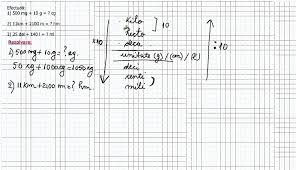 Efectuați:
1) 500 mg + 10 g = ? cg
2) 11km + 2100 m = ? hm
3) 25 dal + 140 l = ? hl
Rezolvare:
1) 500 mg + 10 g = ? cg
50 cg + 1000 cg = 1050 cg
2) 11 km + 2100 m = ? hm
x10
kilo
hecto
deca
unitate (g) / (m) / (l)
deci
centi
mili
10
: 10